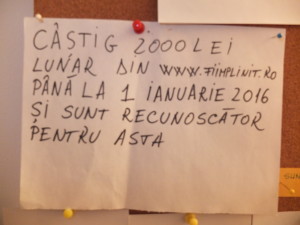 CÂȘTIG 2000 LEI
LUNAR DIN WWW.FIIMPLINIT.RO
PÂNĂ LA 1 IANUARIE 2016
ȘI SUNT RECUNOSCĂTOR
PENTRU ASTA